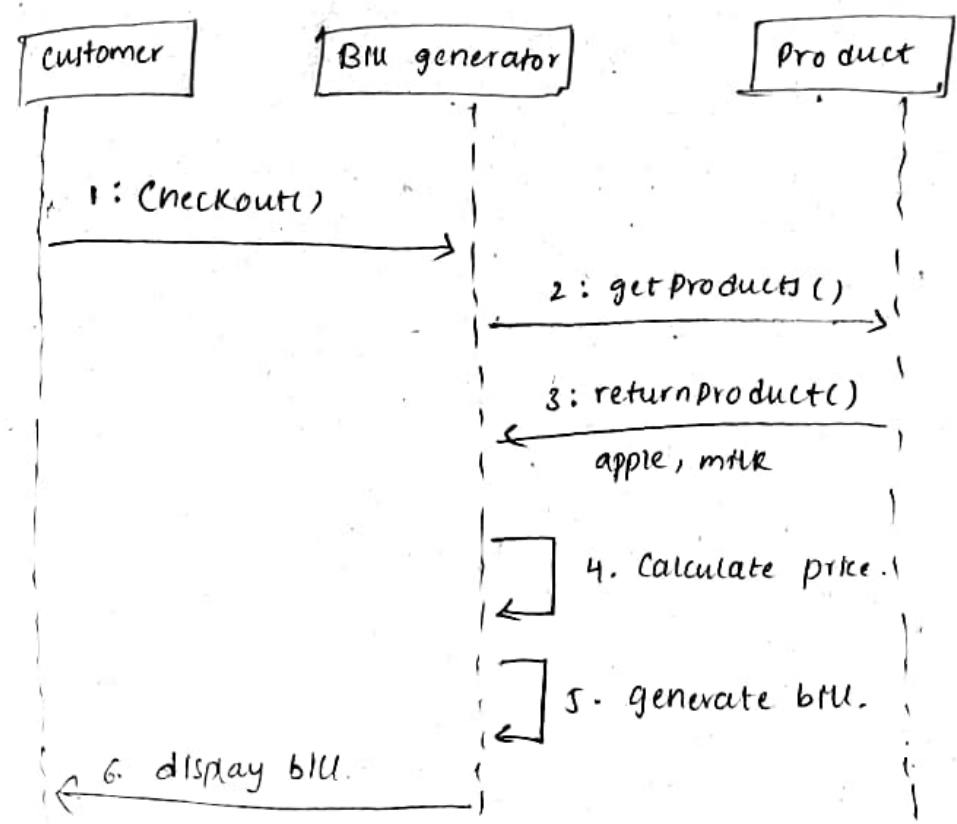 Customer
Bill generator
Product
1: Checkout()
2: getProducts()
3: returnProduct()
apple, milk
4. Calculate price.
5. generate bill.
6. display bill.